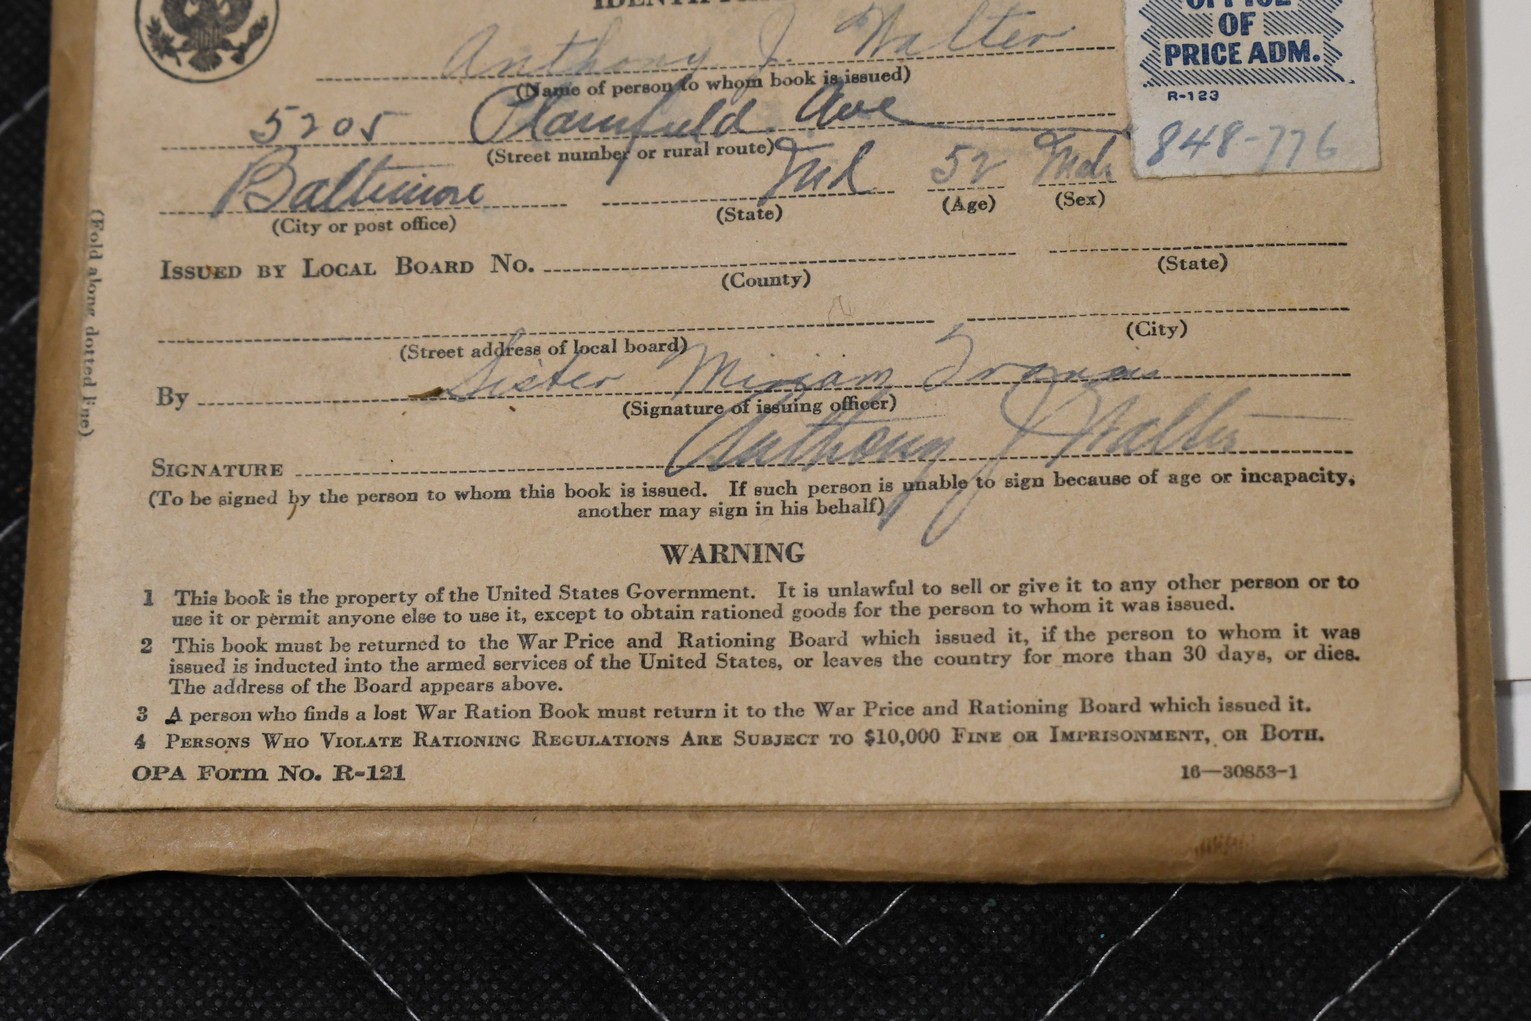 OFFICE
OF
PRICE ADM.
R-123
848-776
Anthony J. Walter
(Name of person to whom book is issued)
5205 Plainfield Ave
(Street number or rural route)
Baltimore Md 52 Mal.
(City or post office) (State) (Age) (Sex)
ISSUED BY LOCAL BOARD No.
(County) (State)
(Street address of local board) (City)
By Sister Miriam Francis
(Signature of issuing officer)
SIGNATURE Anthony J Walter
(To be signed by the person to whom this book is issued. If such person is unable to sign because of age or incapacity,
another may sign in his behalf)
(Fold along dotted line)
WARNING
1 This book is the property of the United States Government. It is unlawful to sell or give it to any other person or to
use it or permit anyone else to use it, except to obtain rationed goods for the person to whom it was issued.
2 This book must be returned to the War Price and Rationing Board which issued it, if the person to whom it was
issued is inducted into the armed services of the United States, or leaves the country for more than 30 days, or dies.
The address of the Board appears above.
3 A person who finds a lost War Ration Book must return it to the War Price and Rationing Board which issued it.
4 PERSONS WHO VIOLATE RATIONING REGULATIONS ARE SUBJECT TO $10,000 FINE OR IMPRISONMENT, OR BOTH.
OPA Form No. R-121 16—30853-1